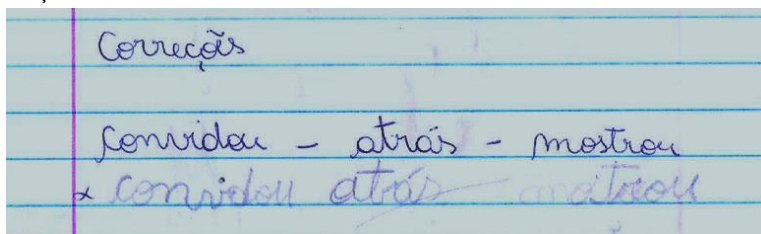 Correções
convidou - atrás - mostrou
x convidou atrás motrou